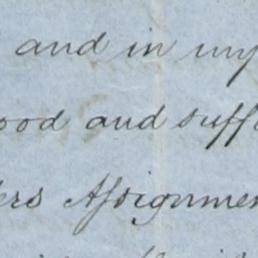 and in my
ood and suff
ers Assignmen